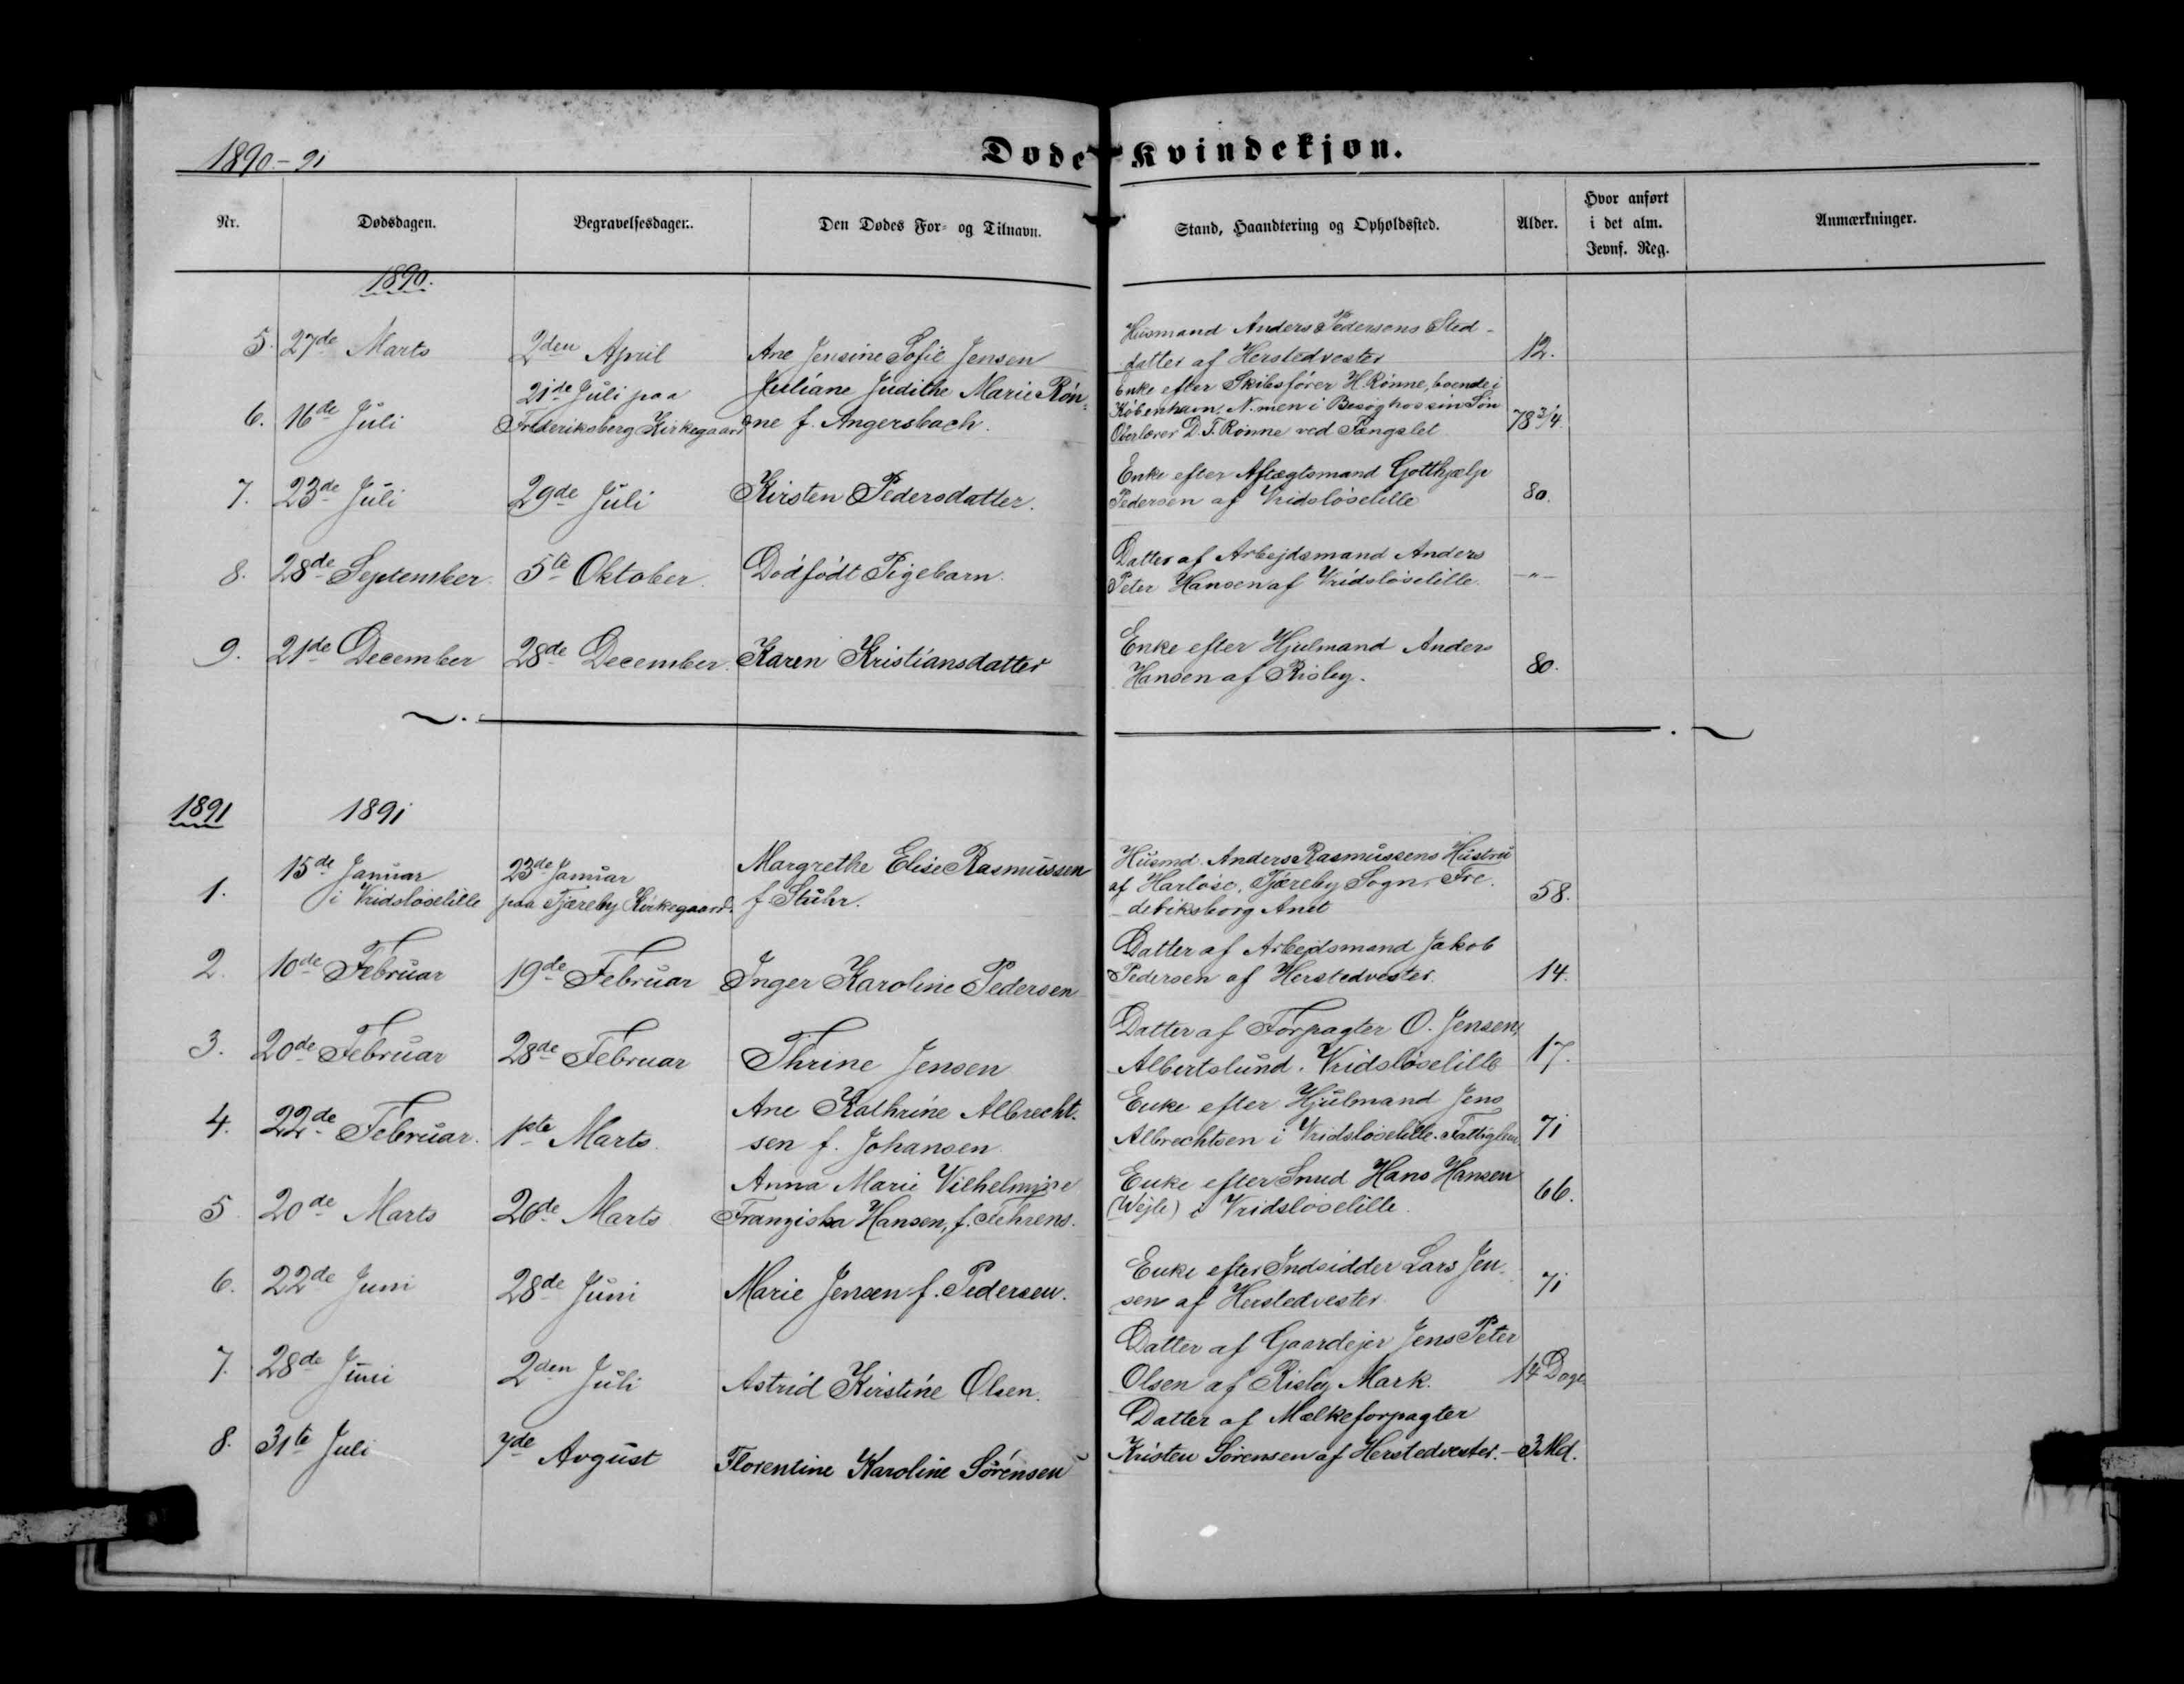 1890-91
Døde Kvindekjøn.
Nr. Dødsdagen. Begravelsesdagen. Den Dødes For- og Tilnavn. Stand, Haandtering og Opholdssted. Alder. Hvor anført i det alm. Jevnf. Reg. Anmærkninger.
1890.
5. 27de Marts 2den April Ane Jensine Sofie Jensen
Husmand Anders Pedersens Sted-
datter af Herstedvester 12.
6. 16de Juli 21de Juli paa
Frederiksberg Kirkegaard
Juliane Judithe Marie Røn-
ne f. Angersbach.
Enke efter Skibsfører H. Rønne, boende i
København, N. men i Besøg hos sin Søn
Overlærer D. T. Rønne ved Fængslet 78 3/4.
7. 23de Juli 29de Juli Kirsten Pedersdatter.
Enke efter Aftægtsmand Gotthjælp
Pedersen af Vridsløselille 80.
8. 28de September. 5te Oktober. Dødfødt Pigebarn.
Datter af Arbejdsmand Anders
Peter Hansen af Vridsløselille. -"-
9. 21de December 28de December. Karen Kristiansdatter
Enke efter Hjulmand Anders
Hansen af Risby. 80.
1891 1891
1. 15de Januar
i Vridsløselille
23de Januar
paa Tjæreby Kirkegaard.
Margrethe Elise Rasmussen
f. Stuhr.
Husmd. Anders Rasmussens Hustru
af Harløse, Tjæreby Sogn, Fre-
deriksborg Amt 58.
2. 10de Februar 19de Februar Inger Karoline Pedersen
Datter af Arbejdsmand Jakob
Pedersen af Herstedvester. 14.
3. 20de Februar 28de Februar Thrine Jensen
Datter af Forpagter O. Jensen,
Albertslund. Vridsløselille 17.
4. 22de Februar. 1ste Marts.
Ane Kathrine Albrecht-
sen f. Johansen
Enke efter Hjulmand Jens
Albrechtsen i Vridsløselille. 71
5. 20de Marts 26de Marts
Anna Marie Vilhelmine
Franziska Hansen, f. Fehrens.
Enke efter Smed Hans Hansen
(Wejle) i Vridsløselille. 66.
6. 22de Juni 28de Juni Marie Jensen f. Pedersen.
Enke efter Indsidder Lars Jen-
sen af Herstedvester 71
7. 28de Juni 2den Juli Astrid Kirstine Olsen.
Datter af Gaardejer Jens Peter
Olsen af Risby Mark. 14 Dage
8. 31te Juli 7de Avgust Florentine Karoline Sørensen
Datter af Mælkeforpagter
Kristen Sørensen af Herstedvester. - 3 Md.